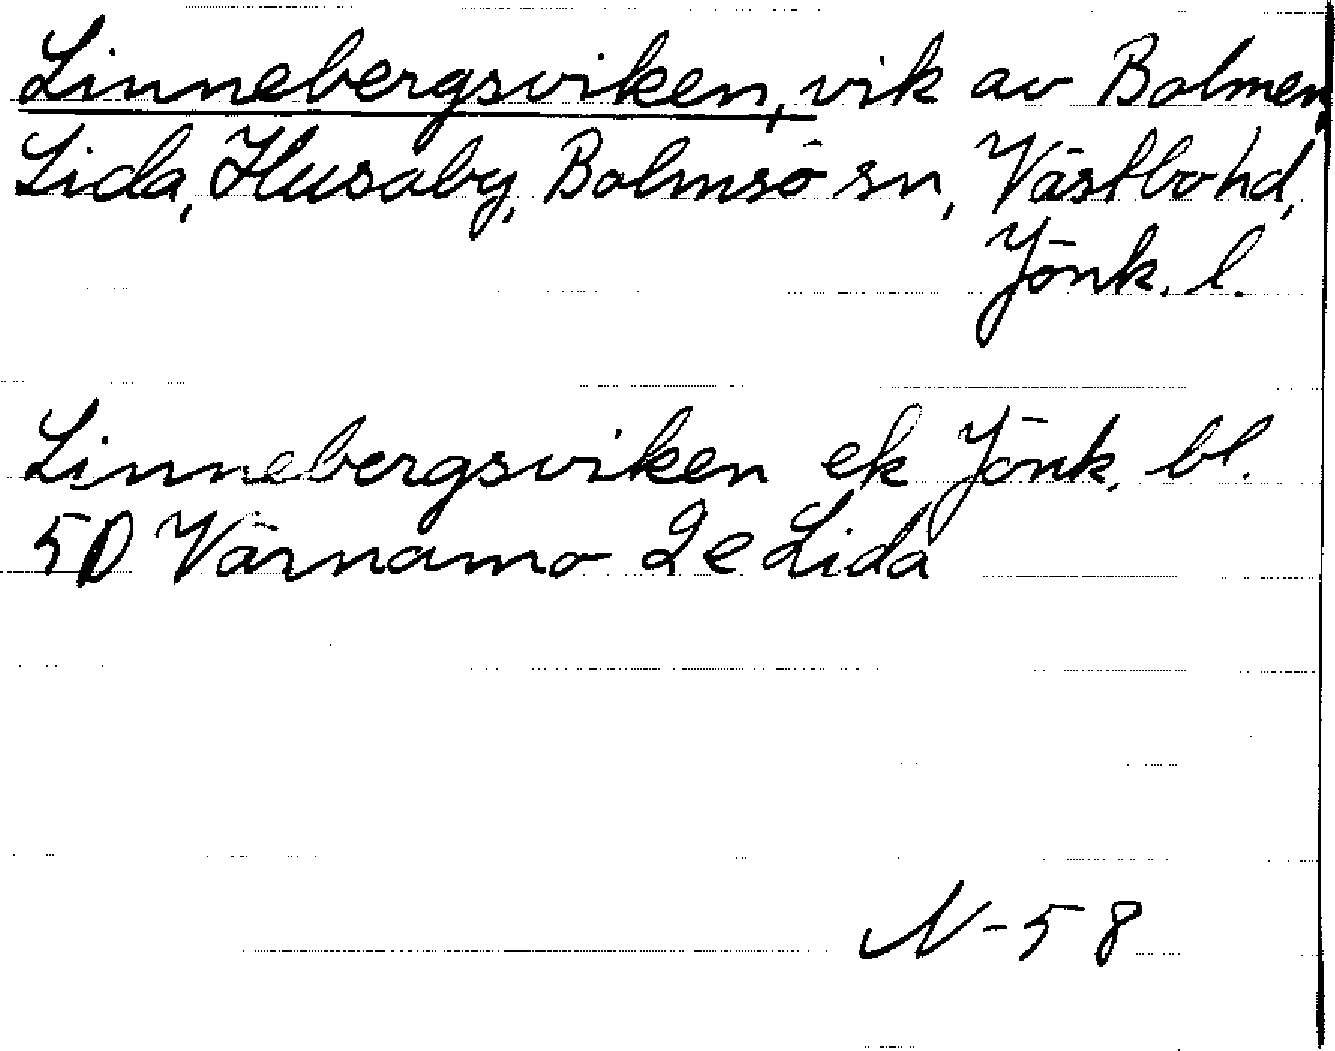 Linnebergsviken, vik av Bolmen,
Lida, Husaby, Bolmsö sn, Västbo hd,
Jönk. l.
Linnebergsviken ek Jönk. bl.
5D Värnamo 2e Lida
N-58